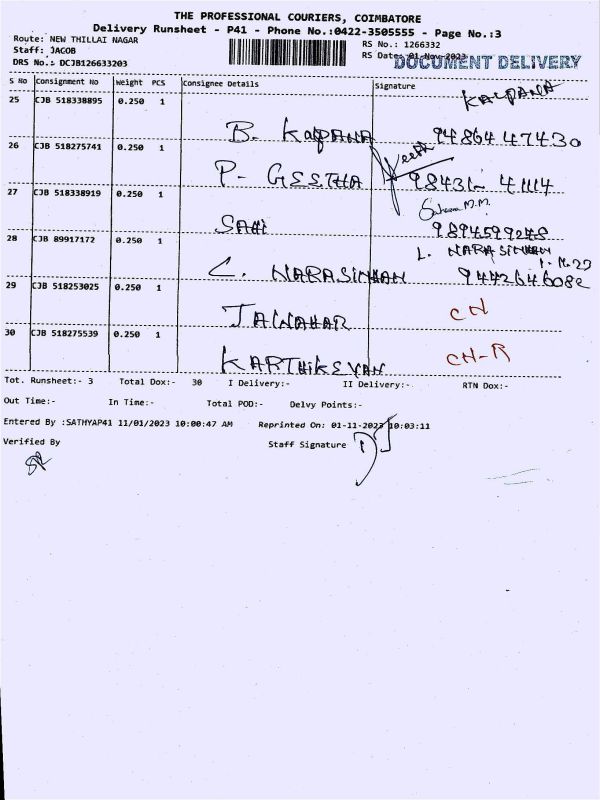 THE PROFESSIONAL COURIERS, COIMBATORE
Delivery Runsheet - P41 - Phone No.:0422-3505555 - Page No.:3
Route: NEW THILLAI NAGAR RS No.: 1266332
Staff: JACOB RS Date: 01-Nov-2023
DRS No.: DCJB126633203 DOCUMENT DELIVERY
S No Consignment No Weight PCS Consignee Details Signature
KALPANA
25 CJB 518338895 0.250 1
B. Kalpana 94864 47430
26 CJB 518275741 0.250 1
P- GEETHA 98431- 41114
27 CJB 518338919 0.250 1
SAHI 9894599248
28 CJB 89917172 0.250 1 L. NARASIMHAN
L. NARASIMHAN 9442646082
29 CJB 518253025 0.250 1
JAWAHAR CN
30 CJB 518275539 0.250 1
KARTHIKEYAN CN-R
Tot. Runsheet:- 3 Total Dox:- 30 I Delivery:- II Delivery:- RTN Dox:-
Out Time:- In Time:- Total POD:- Delvy Points:-
Entered By :SATHYAP41 11/01/2023 10:00:47 AM Reprinted On: 01-11-2023 10:03:11
Verified By Staff Signature